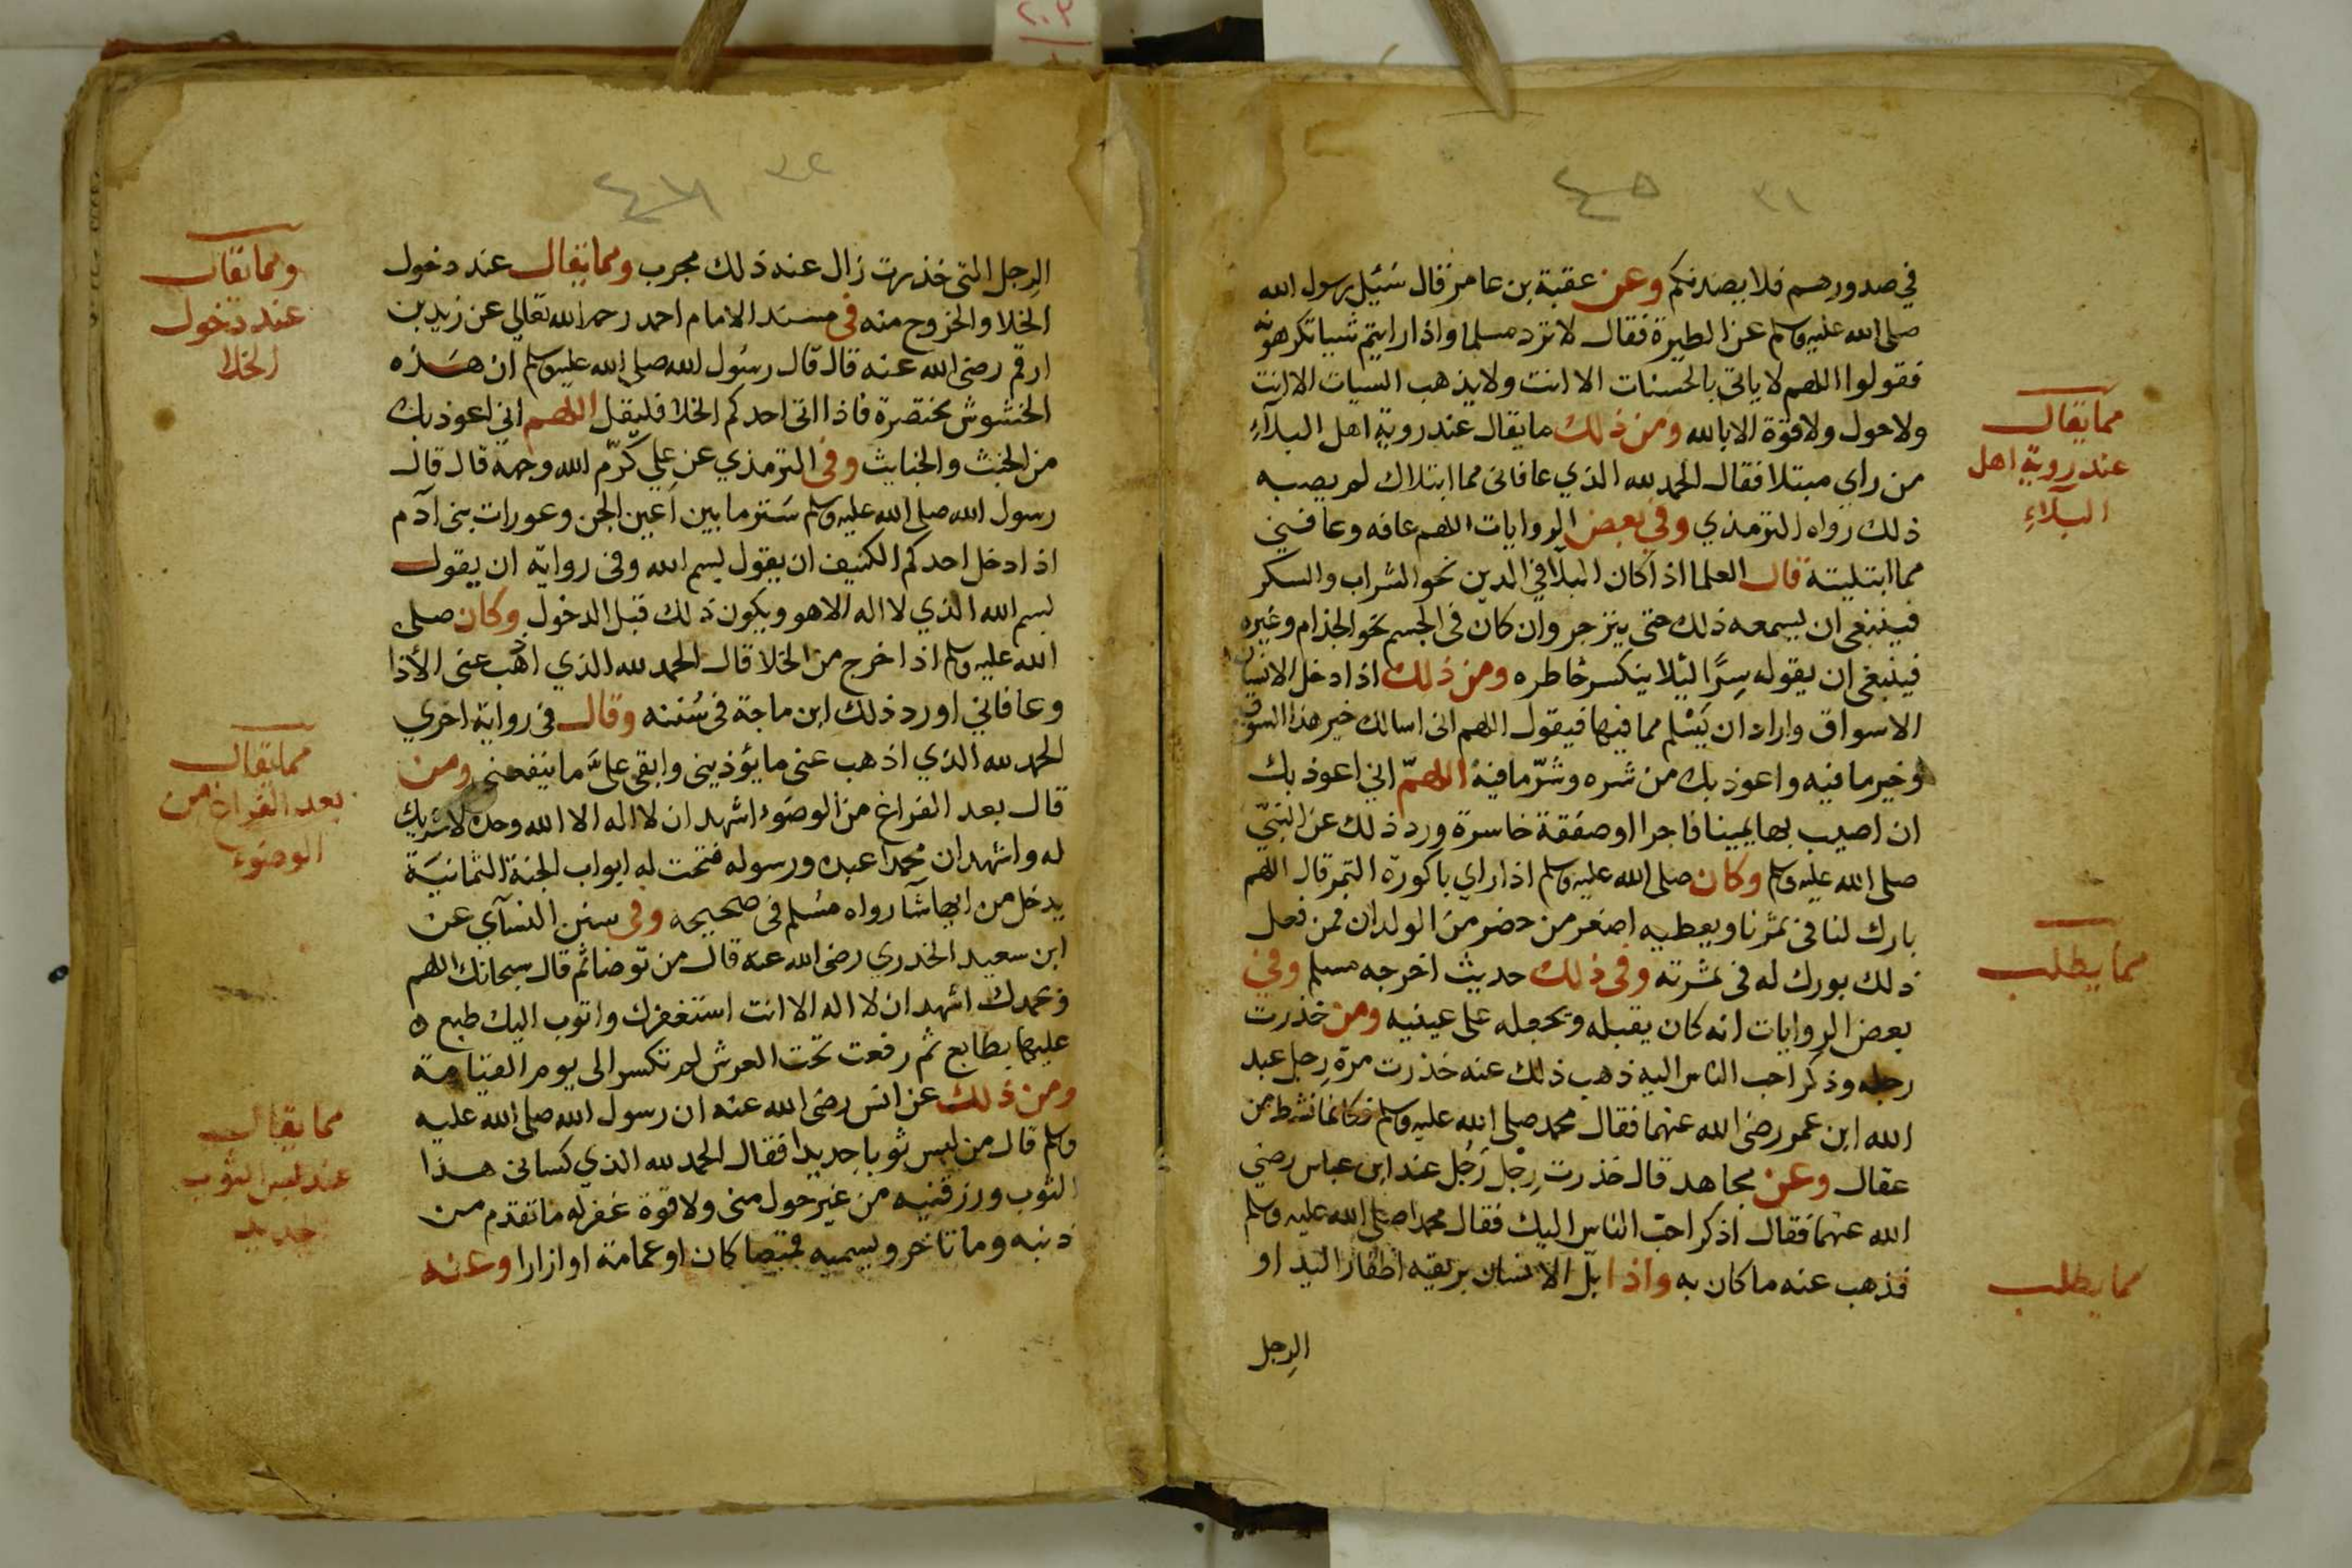 ٢٠٣
٣١
٤٥
في صدورهم فلا يصدنكم وعن عقبة بن عامر قال سئيل رسول الله
صلى الله عليه وسلم عن الطيرة فقال لا ترد مسلما واذا رايتم شيا تكرهونه
فقولوا اللهم لا ياتي بالحسنات الا انت ولا يذهب السيات الا انت
ولا حول ولا قوة الا بالله ومن ذلك ما يقال عند روية اهل البلآء
من راي مبتلا فقال الحمد لله الذي عافانى مما ابتلاك لم يصبه
ذلك رواه الترمذي وفي بعض الروايات اللهم عافه وعافني
مما ابتليته قال العلما اذا كان البلآ في الدين نحو الشراب والسكر
فينبغى ان يسمعه ذلك حتى ينزجر وان كان فى الجسم نحو الجذام وغيره
فينبغى ان يقوله سِرًّا ليئلا ينكسر خاطره ومن ذلك اذا دخل الانسان
الاسواق واراد ان يَسْلم مما فيها فيقول اللهم انى اسالك خير هذا السوق
وخير ما فيه واعوذ بك من شره وشرّ ما فيه اللهمّ اني اعوذ بك
ان اصيب بها يمينا فاجرا او صفقة خاسرة ورد ذلك عن النبيّ
صلى الله عليه وسلم وكان صلى الله عليه وسلم اذا راي باكورة الثمر قال اللهم
بارك لنا فى ثمرنا ويعطيه اصغر من حضر من الولدان فمن فعل
ذلك بورك له فى ثمرته وفى ذلك حديث اخرجه مسلم وفي
بعض الروايات انه كان يقبله ويجعله على عينيه ومن خذرت
رجله وذكر احب الناس اليه ذهب ذلك عنه خذرت مرة رِجل عبد
الله ابن عمر رضى الله عنهما فقال محمد صلى الله عليه وسلم فكانما نشط من
عقال وعن مجاهد قال خذرت رِجْل رَجُل عند ابن عباس رضي
الله عنهما فقال اذكر احبّ الناس اليك فقال محمدا صلى الله عليه وسلم
فذهب عنه ما كان به واذا بلّ الانسان بريقه اظفار اليد او
الرِجل
مما يقال
عند روية اهل
البلآءِ
مما يطلب
مما يطلب
٣٢
٤٦
الرِجل التى خذرت زال عند ذلك مجرب ومما يقال عند دخول
الخلا والخروج منه فى مسند الامام احمد رحمه الله تعالي عن زيد بن
ارقم رضى الله عنه قال قال رسُول الله صلى الله عليه وسلم ان هذه
الخشوش مختصرة فاذا اتى احدكم الخلا فليقل اللهم انى اعوذ بك
من الخبث والخبايث وفى الترمذي عن علي كرّم الله وجهه قال قال
رسول الله صلى الله عليه وسلم سَتر ما بين أعين الجن وعورات بنى آدم
اذا دخل احدكم الكنيف ان يقول بسم الله وفى رواية ان يقول
بسم الله الذي لا اله الا هو ويكون ذلك قبل الدخول وكان صلى
الله عليه وسلم اذا خرج من الخلا قال الحمد لله الذي اذهب عنى الأذا
وعافاني اورد ذلك ابن ماجة فى سُننه وقال فى رواية اخري
الحمد لله الذي اذهب عنى ما يؤذينى وابقى علىَّ ما ينفعنى ومن
قال بعد الفراغ من الوضوء اشهد ان لا اله الا الله وحده لا شريك
له واشهد ان محمدا عبده ورسوله فتحت له ابواب الجنة الثمانيَة
يدخل من ايها شآ رواه مسْلم فى صحيحه وفى سنن النسآي عن
ابن سعيد الخدري رضى الله عنه قال من توضا ثم قال سبحانك اللهم
وبحمدك اشهد ان لا اله الا انت استغفرك واتوب اليك طبع ٥
عليها بطابع ثم رفعت تحت العرش لم تكسر الى يوم القيامة
ومن ذلك عن انس رضى الله عنه ان رسول الله صلى الله عليه
وسلم قال من لبس ثوبا جديدا فقال الحمد لله الذي كسانى هذا
الثوب ورزقنيه من غير حول منى ولا قوة غفر له ما تقدم من
ذنبه وما تاخر ويسميه قميصا كان او عمامة او ازارا وعنه
ومما يقال
عند دخول
الخلا
مما يقال
بعد الفراغ من
الوضوء
مما يقال
عند لبس الثوب
جديد